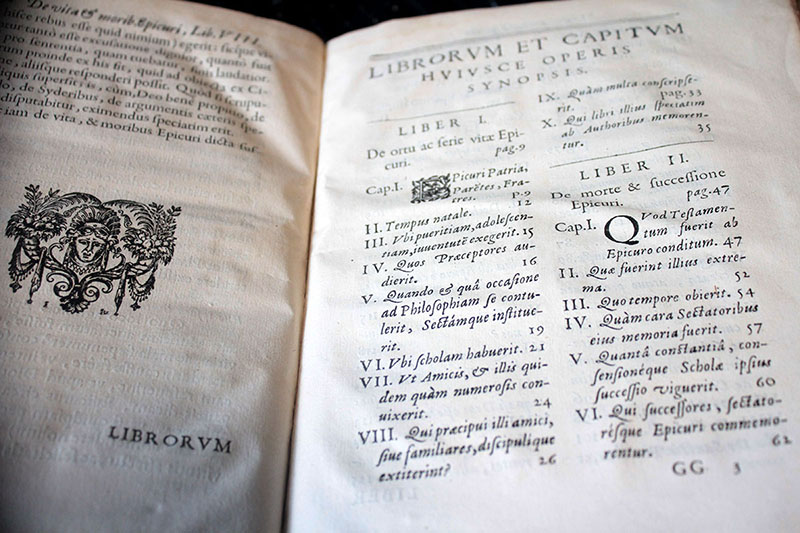 De vita & morib. Epicuri, Lib. VIII.
hisce rebus esse quid nimium) egerit: sicque vir
tantò esse excusatione dignior, quantò fuit
pro sententia, quam tuebatur, foret laudatior.
proinde ex his sit, quid ad cætera ex Ci-
diusque responderi possit. Quod si scrupu-
quis superfit; is, cùm, Deo bene propitio, de
do, de Syderibus, de argumentis cæteris spe-
disputabitur, eximendus speciatim erit.
iam de vita, & moribus Epicuri dicta suf-
LIBRORVM
LIBRORVM ET CAPITVM
HVIVSCE OPERIS
SYNOPSIS.
LIBER I.
De ortu ac serie vitæ Epi-
curi. pag.9
Cap.I. EPicuri Patria,
Parẽtes, Fra-
tres. p.9
II. Tempus natale. 12
III. Vbi pueritiam, adolescen-
tiam, iuuentutẽ exegerit. 15
IV. Quos Præceptores au-
dierit. 16
V. Quando & quâ occasione
ad Philosophiam se contu-
lerit, Sectámque instituc-
rit. 19
VI. Vbi scholam habuerit. 21
VII. Vt Amicis, & illis qui-
dem quàm numerosis con-
uixerit. 24
VIII. Qui præcipui illi amici,
siue familiares, discipulique
extiterint? 26
IX. Quàm multa conscripse-
rit. pag.33
X. Qui libri illius speciatim
ab Authoribus memoren-
tur. 35
LIBER II.
De morte & successione
Epicuri. pag.47
Cap.I. QVod Testamen-
tum fuerit ab
Epicuro conditum. 47
II. Quæ fuerint illius extre-
ma. 52
III. Quo tempore obierit. 54
IV. Quàm cara Sectatoribus
eius memoria fuerit. 57
V. Quantâ constantiâ, con-
sensionéque Scholæ ipsius
successio viguerit. 60
VI. Qui successores, sectato-
résque Epicuri commemo-
rentur. 62
GG 3